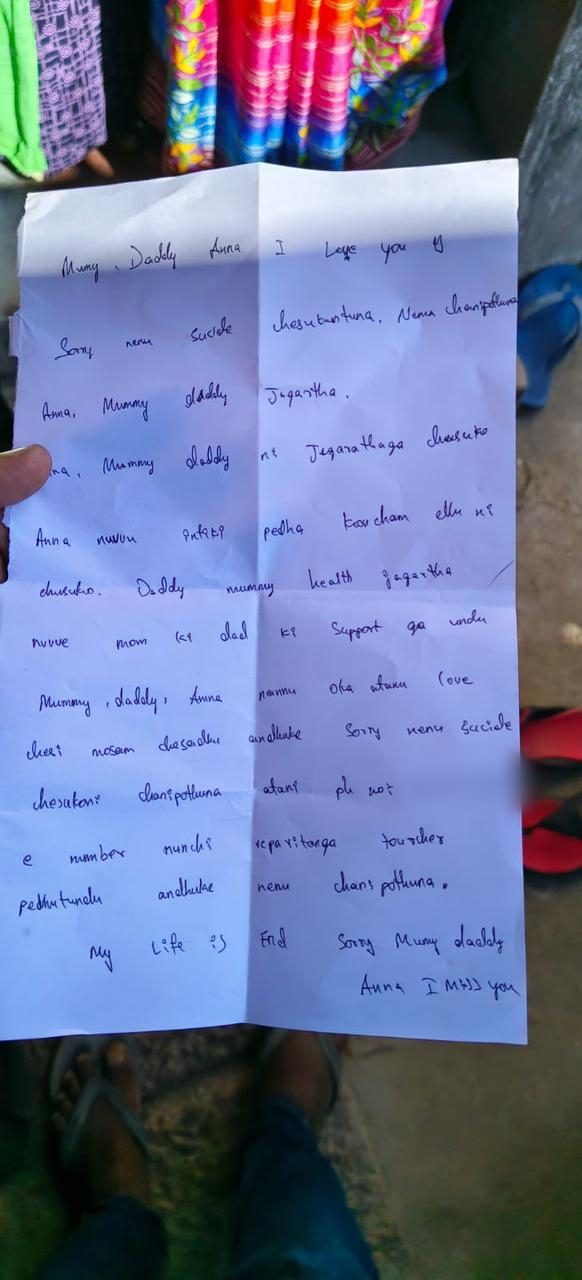 Mumy, Daddy Anna I Love you
Sorry nenu sucide chesukuntuna. Nenu chanipothuna
Anna, Mummy daddy Jagartha.
Mummy daddy ni Jegarathaga chusuko
Anna nuvvu intiki pedha koucham ellu ni
chusuko. Daddy mummy health jagartha
nuvve mom ki dad ki support ga undu
Mummy, daddy, Anna nannu oka atanu love
chesi mosam chesadhu andhuke Sorry nenu sucide
chesukoni chanipothuna atani ph no:
e number nunchi reparitanga tourcher
pedhutundu andhuke nenu chanipothuna.
My Life is End Sorry Mumy daddy
Anna I Miss you